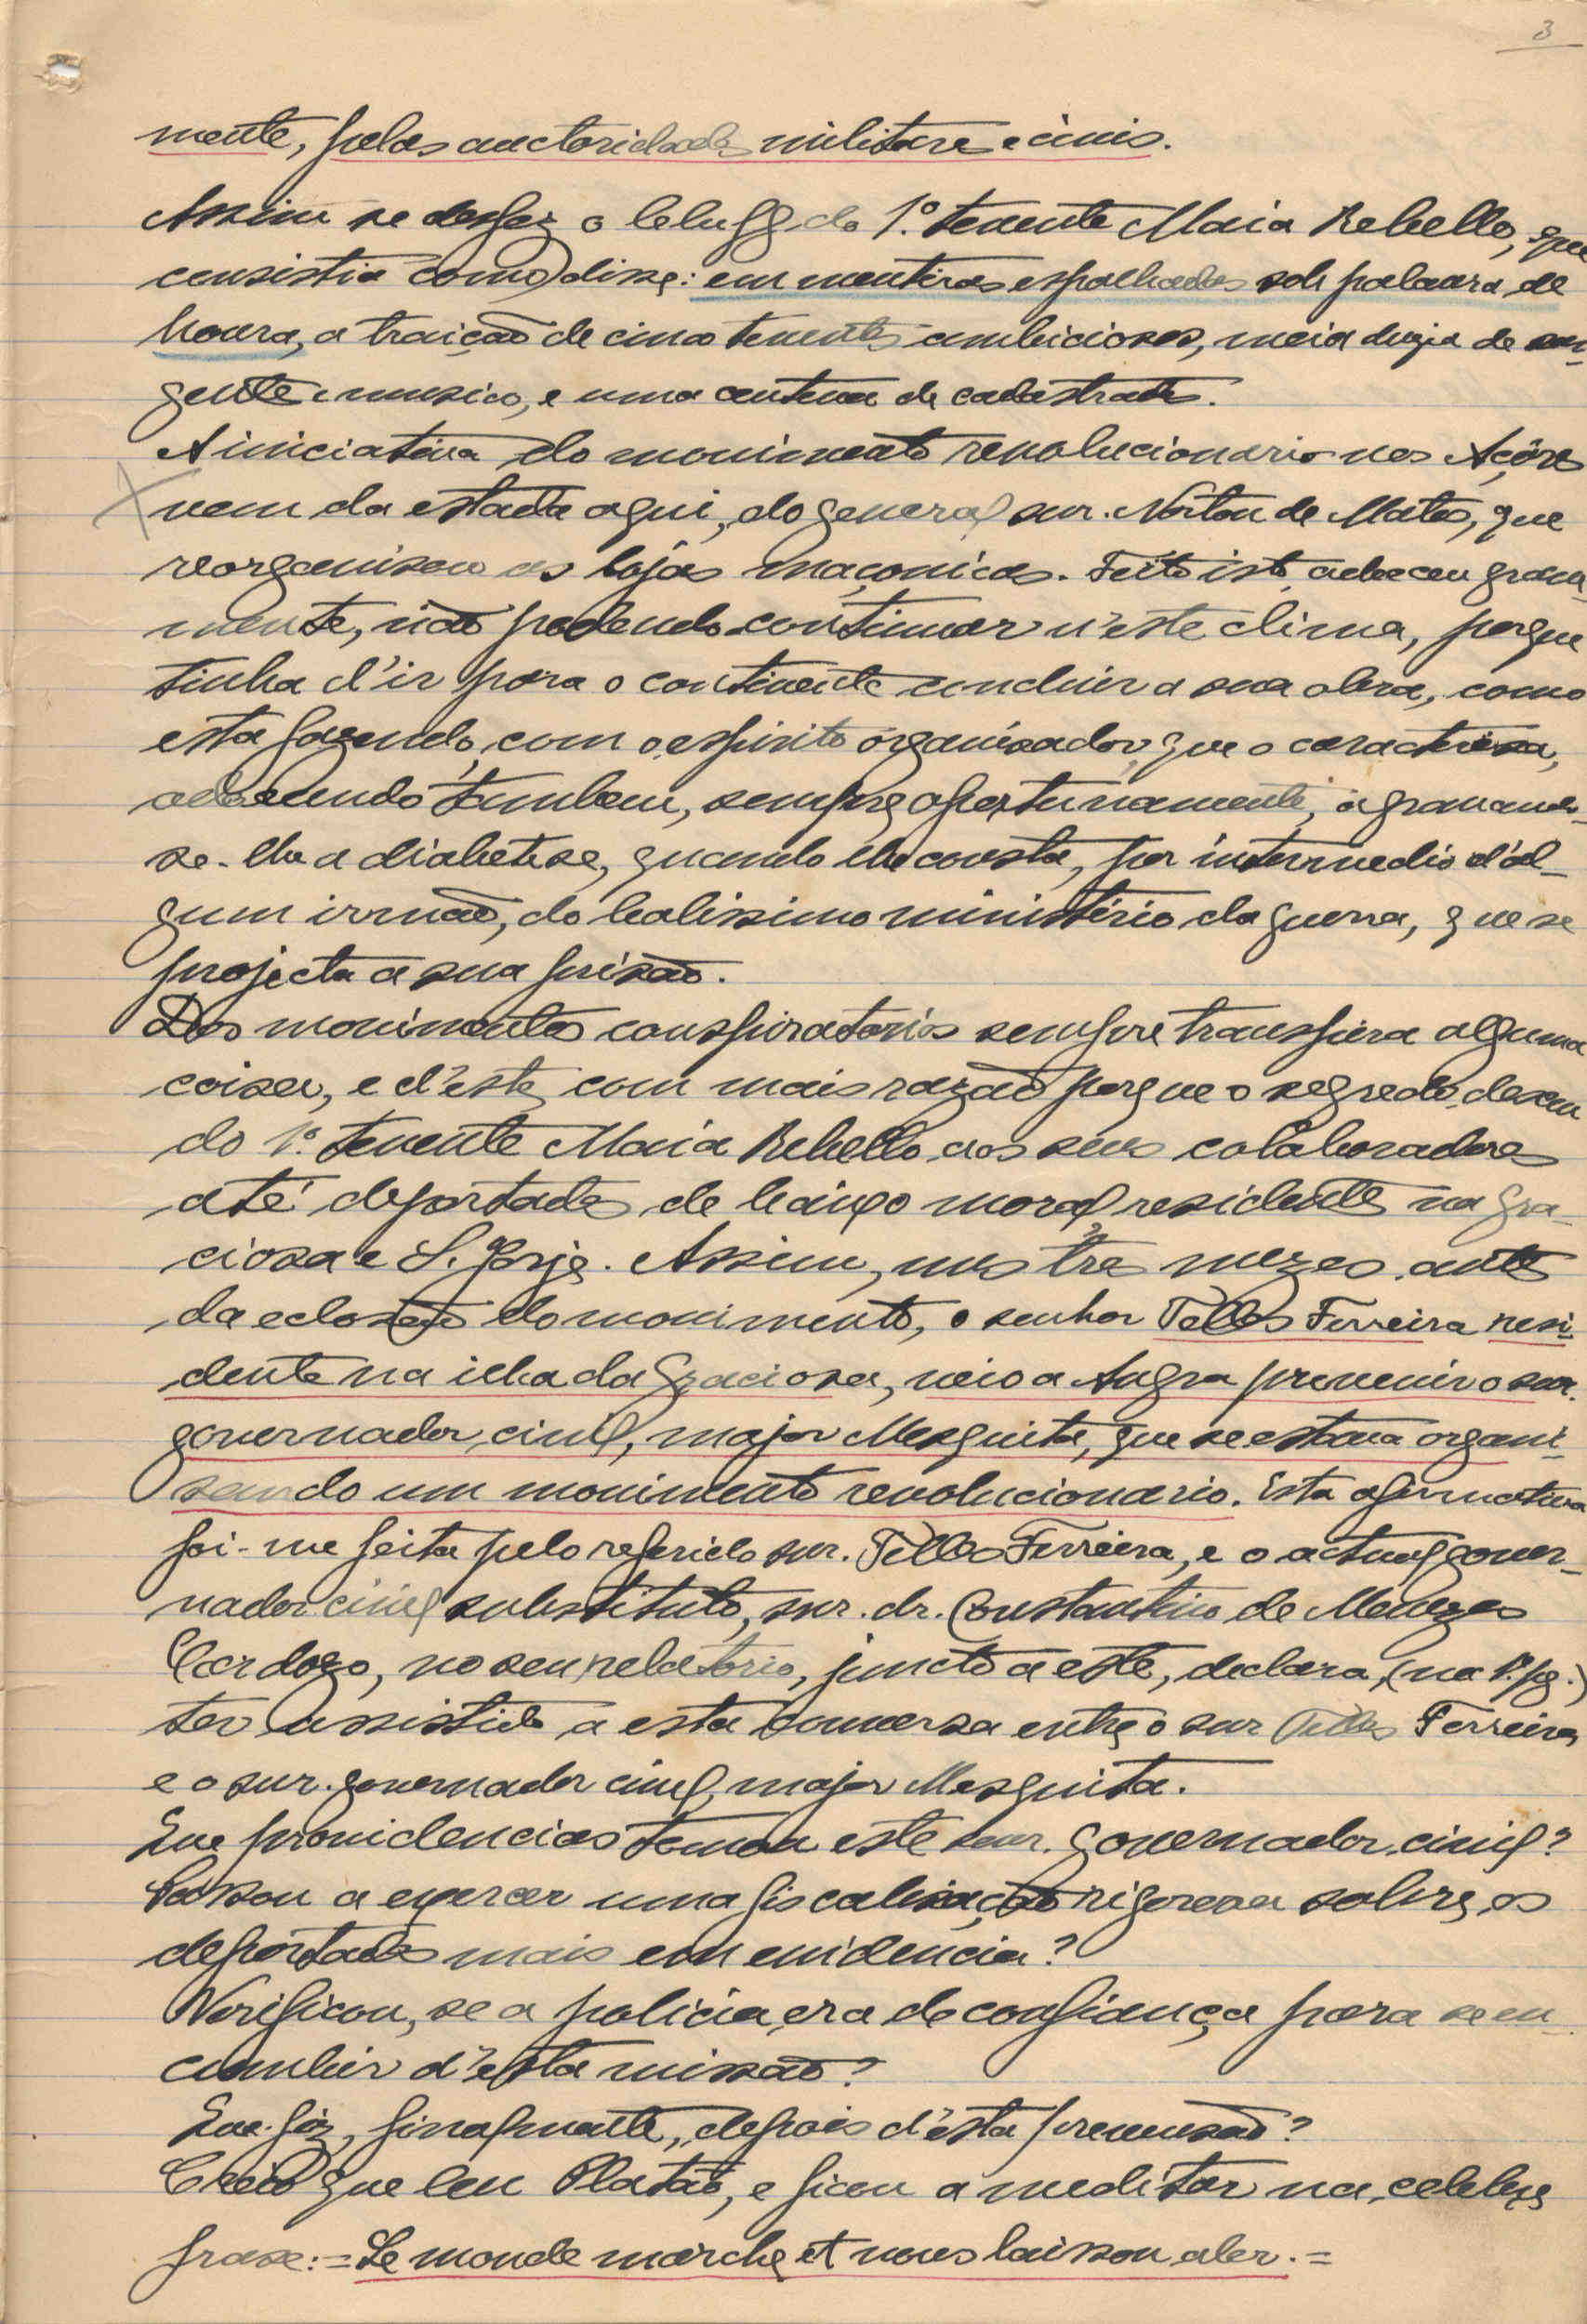 3
mente, pelas auctoridades militares e civis.
Assim se desfez o bluff do 1.º tenente Maia Rebello, que
consistia como disse: em mentiras espalhadas sob palavra de
honra, a traição de cinco tenentes ambiciosos, meia duzia de sar-
gentos e musico, e uma centena de cadastrados.
A iniciativa do movimento revolucionario nos Açôres
vem da estada aqui, do general snr. Norton de Matos, que
reorganisou as lojas maçonicas. Feito isto, adoeceu grave-
mente, não podendo continuar n'este clima, porque
tinha d'ir para o continente concluir a sua obra, como
esta fazendo, com o espirito organisador que o caracterisa,
adoecendo tambem, sempre oportunamente, agravando-
se-lhe a diabetese, quando lhe consta, por intermedio d'al-
gum irmão, do lealissimo ministério da guerra, que se
projecta a sua prisão.
Dos movimentos conspiratorios sempre transpira alguma
coisa, e d'este, com mais razão porque o segredo, desceu
do 1.º tenente Maia Rebello aos seus colaboradores
até deportados de baixo moral, residentes na Gra-
ciosa e S. Jorje. Assim, uns três mezes antes
da eclosão do movimento, o senhor Telles Ferreira resi-
dente na ilha da Graciosa, veio a Angra prevenir o snr.
governador civil, major Mesquita, que se estava organi-
sando um movimento revolucionario. Esta afirmativa
foi-me feita pelo referido snr. Telles Ferreira, e o actual gover-
nador civil substituto, snr. dr. Constantino de Menezes
Cardozo, no seu relatorio, juncto a este, declara, (na 1.ª pg.)
ter assistido a esta conversa entre o snr Telles Ferreira
e o snr. governador civil, major Mesquita.
Que providencias tomou este snr. governador civil?
Passou a exercer uma fiscalisação rigorosa sobre os
deportados mais em evidencia?
Verificou, se a policia era de confiança para se en-
cumbir d'esta missão?
Que fez, finalmente, depois d'esta prevensão?
Creio que leu Platão, e ficou a meditar na celebre
frase: = Le monde marche et nous laisson aler. =